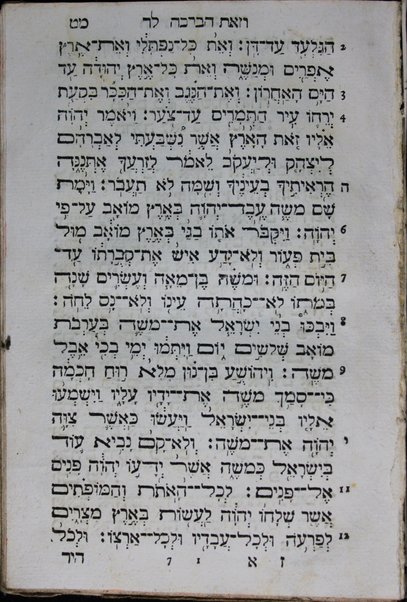 וזאת הברכה לד מט
2 הַגִּלְעָד עַד־דָּן: וְאֵת כָּל־נַפְתָּלִי וְאֶת־אֶרֶץ
אֶפְרַיִם וּמְנַשֶּׁה וְאֵת כָּל־אֶרֶץ יְהוּדָה עַד
3 הַיָּם הָאַחֲרוֹן: וְאֶת־הַנֶּגֶב וְאֶת־הַכִּכָּר בִּקְעַת
4 יְרֵחוֹ עִיר הַתְּמָרִים עַד־צֹעַר: וַיֹּאמֶר יְהוָֹה
אֵלָיו זֹאת הָאָרֶץ אֲשֶׁר נִשְׁבַּעְתִּי לְאַבְרָהָם
לְיִצְחָק וּלְיַעֲקֹב לֵאמֹר לְזַרְעֲךָ אֶתְּנֶנָּה
ה הֶרְאִיתִיךָ בְעֵינֶיךָ וְשָׁמָּה לֹא תַעֲבֹר: וַיָּמָת
שָׁם מֹשֶׁה עֶבֶד־יְהוָֹה בְּאֶרֶץ מוֹאָב עַל־פִּי
6 יְהוָֹה: וַיִּקְבֹּר אֹתוֹ בַגַּיְ בְּאֶרֶץ מוֹאָב מוּל
בֵּית פְּעוֹר וְלֹא־יָדַע אִישׁ אֶת־קְבֻרָתוֹ עַד־
7 הַיּוֹם הַזֶּה: וּמֹשֶׁה בֶּן־מֵאָה וְעֶשְׂרִים שָׁנָה
בְּמֹתוֹ לֹא־כָהֲתָה עֵינוֹ וְלֹא־נָס לֵחֹה:
8 וַיִּבְכּוּ בְנֵי יִשְׂרָאֵל אֶת־מֹשֶׁה בְּעַרְבֹת
מוֹאָב שְׁלֹשִׁים יוֹם וַיִּתְּמוּ יְמֵי בְכִי אֵבֶל
9 מֹשֶׁה: וִיהוֹשֻׁעַ בִּן־נוּן מָלֵא רוּחַ חָכְמָה
כִּי־סָמַךְ מֹשֶׁה אֶת־יָדָיו עָלָיו וַיִּשְׁמְעוּ
אֵלָיו בְּנֵי־יִשְׂרָאֵל וַיַּעֲשׂוּ כַּאֲשֶׁר צִוָּה
י יְהוָֹה אֶת־מֹשֶׁה: וְלֹא־קָם נָבִיא עוֹד
בְּיִשְׂרָאֵל כְּמֹשֶׁה אֲשֶׁר יְדָעוֹ יְהוָֹה פָּנִים
11 אֶל־פָּנִים: לְכָל־הָאֹתֹת וְהַמּוֹפְתִים
אֲשֶׁר שְׁלָחוֹ יְהוָֹה לַעֲשׂוֹת בְּאֶרֶץ מִצְרָיִם
12 לְפַרְעֹה וּלְכָל־עֲבָדָיו וּלְכָל־אַרְצוֹ: וּלְכֹל
ז א 7 1 היד